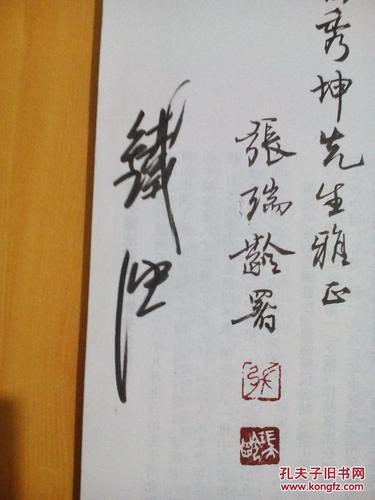 秀坤先生雅正
張瑞齡署
張
瑞齡
鐵
孔夫子旧书网
KONGFZ.COM